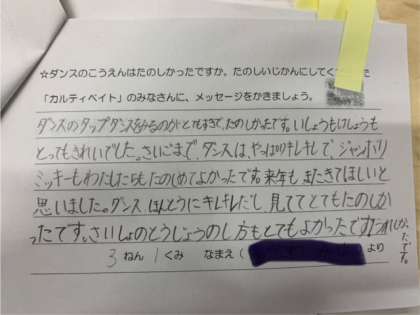 ☆ダンスのこうえんはたのしかったですか。たのしいじかんにしてく
「カルティベイト」のみなさんに、メッセージをかきましょう。
ダンスのタップダンスをみるのがとてもすきで、たのしかったです。いしょうもけしょうも
とってもきれいでした。さいごまで、ダンスは、やっぱりキレキレで、ジャンボリ
ミッキーもわたしたちもたのしめてよかったです。来年もまたきてほしいと
思いました。ダンスほんとうにキレキレだし見ててとてもたのしか
ったです。さいしょのとうじょうのし方もとてもよかったです
3ねん1くみ なまえ( より